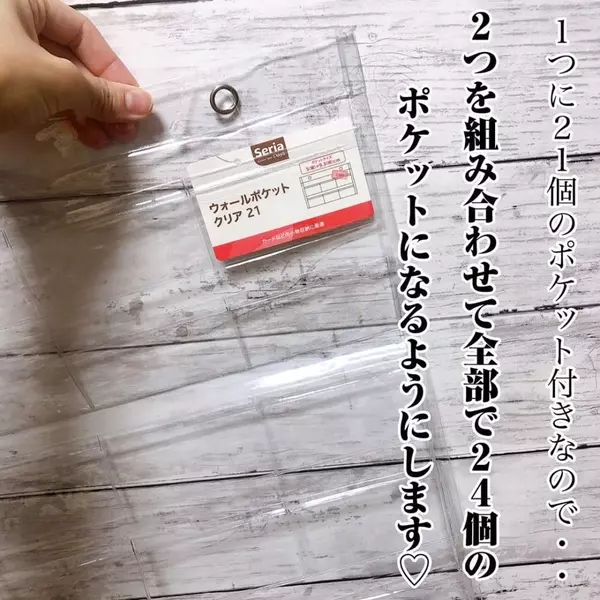 1つに21個のポケット付きなので・・
2つを組み合わせて全部で24個の
ポケットになるようにします♡
Seria
ウォールポケット
クリア 21